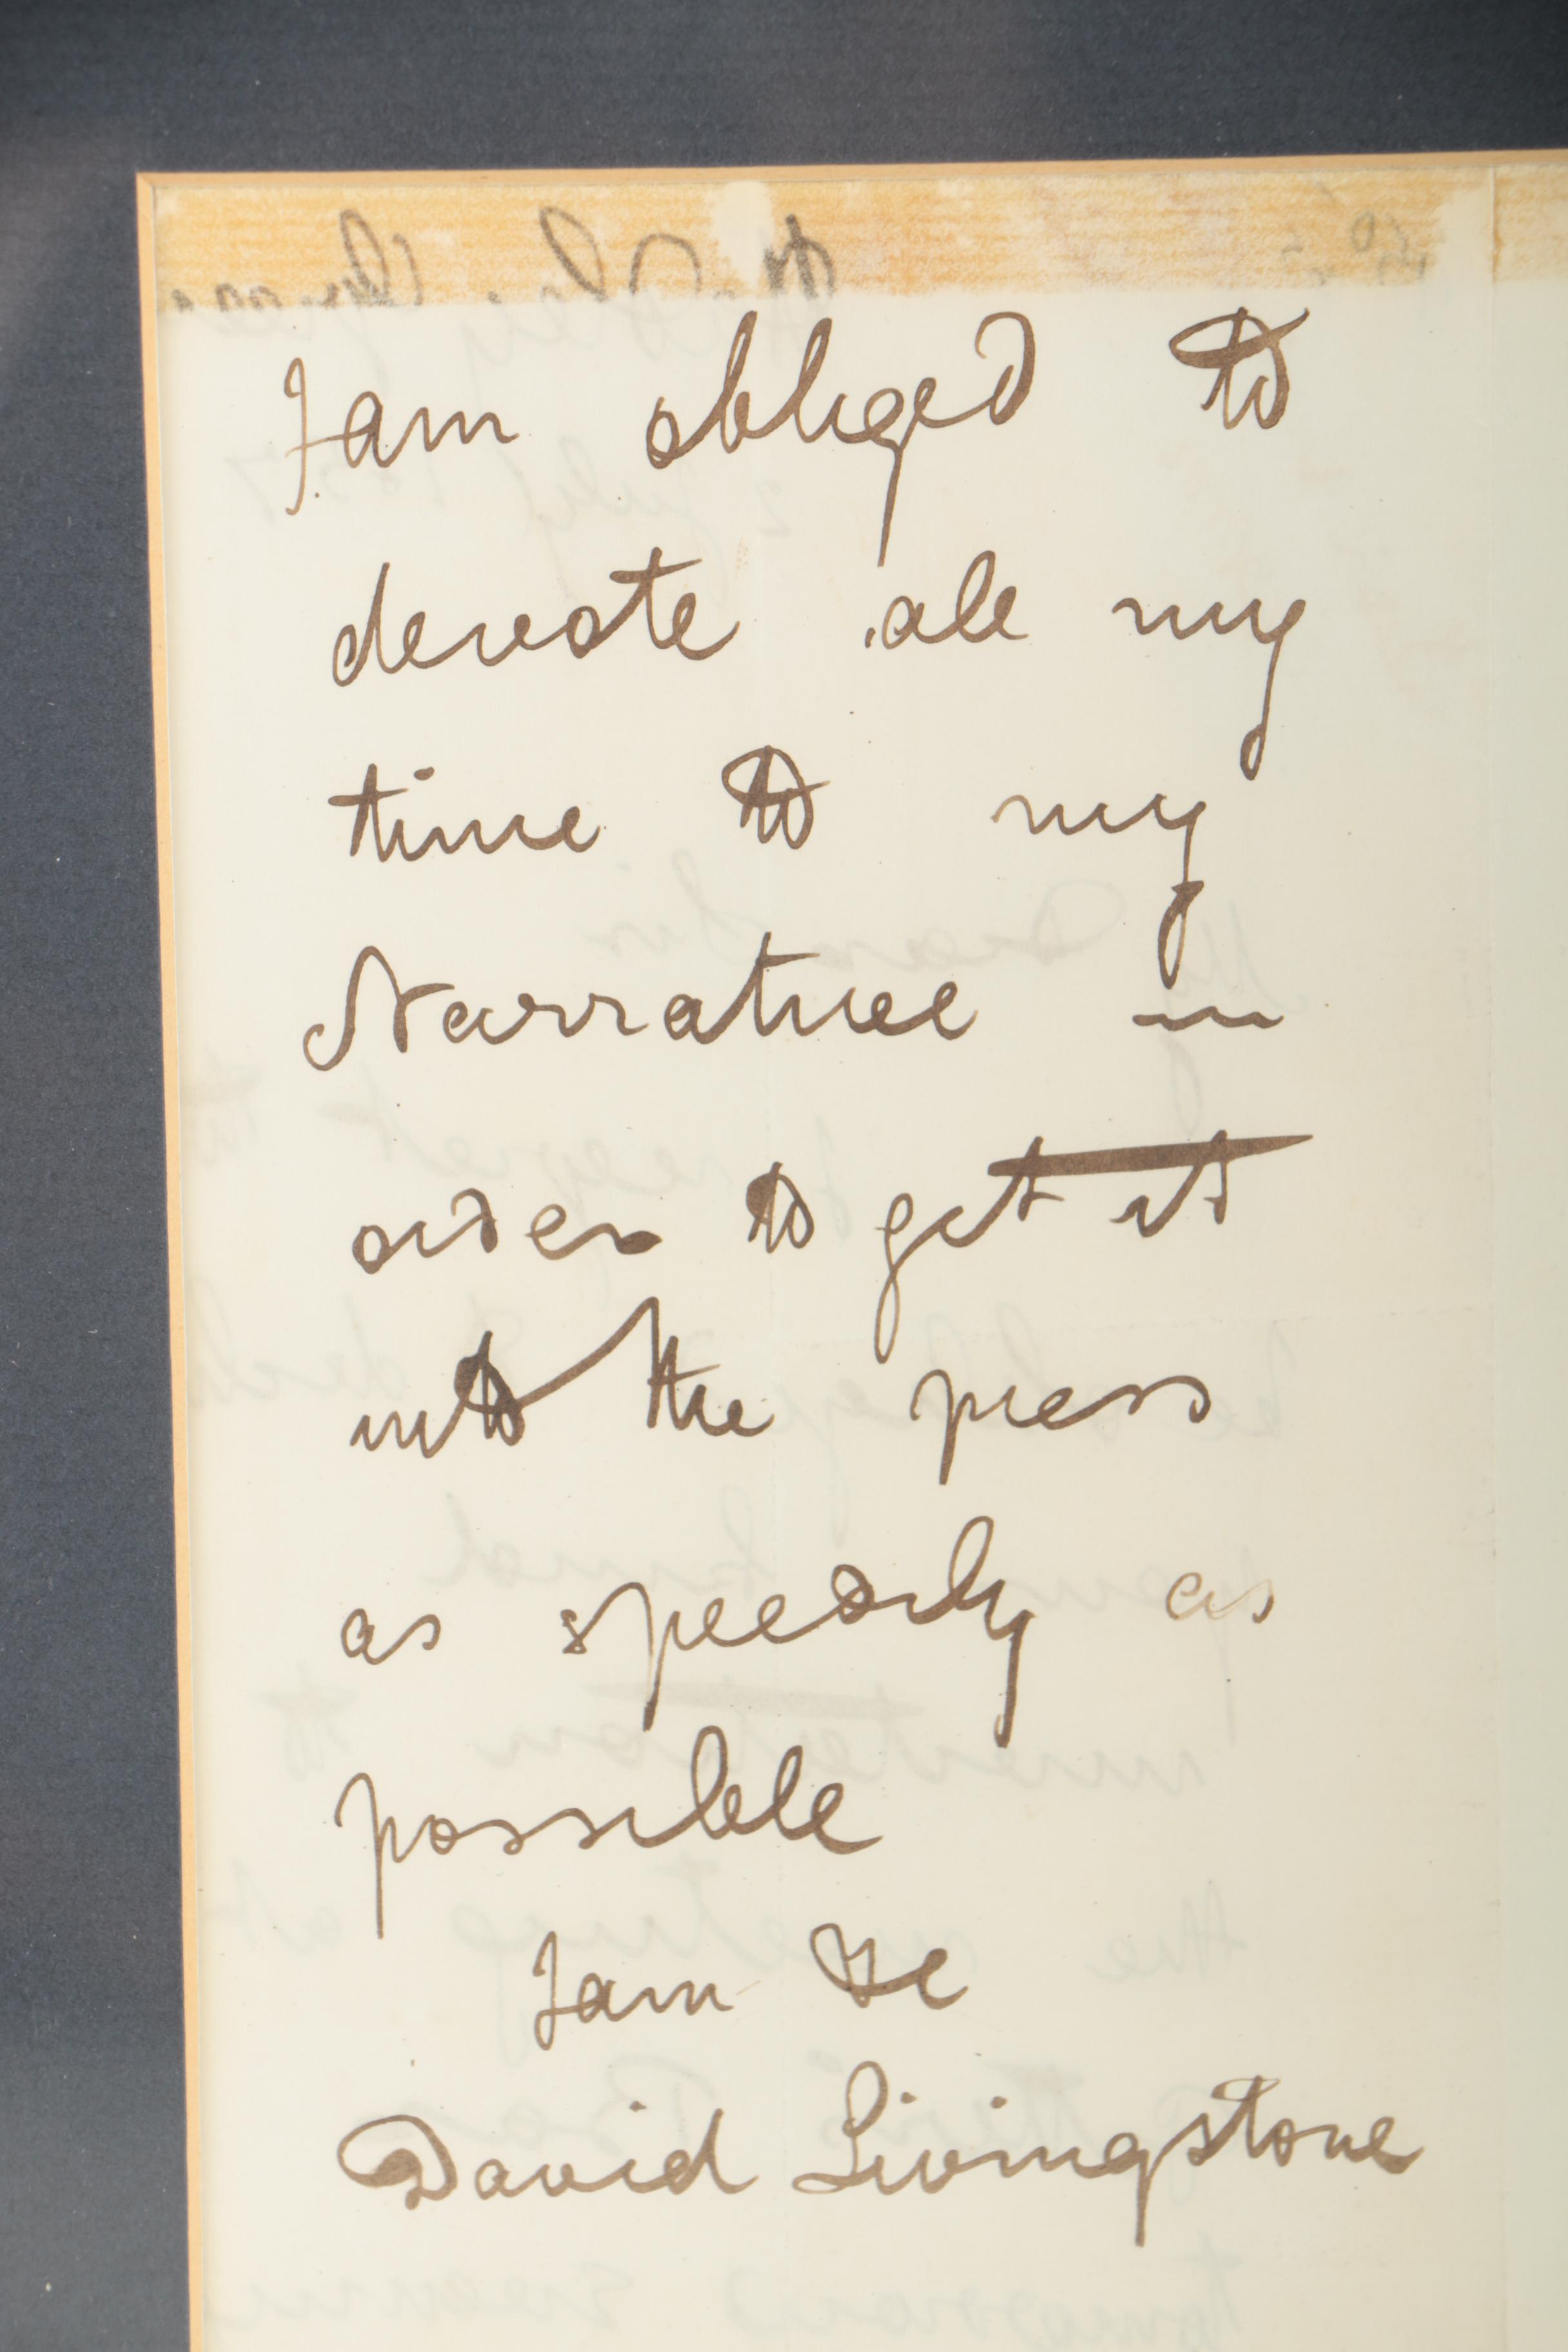 I am obliged to
devote all my
time to my
Narrative in
order to get it
into the press
as speedily as
possible
I am &c
David Livingstone